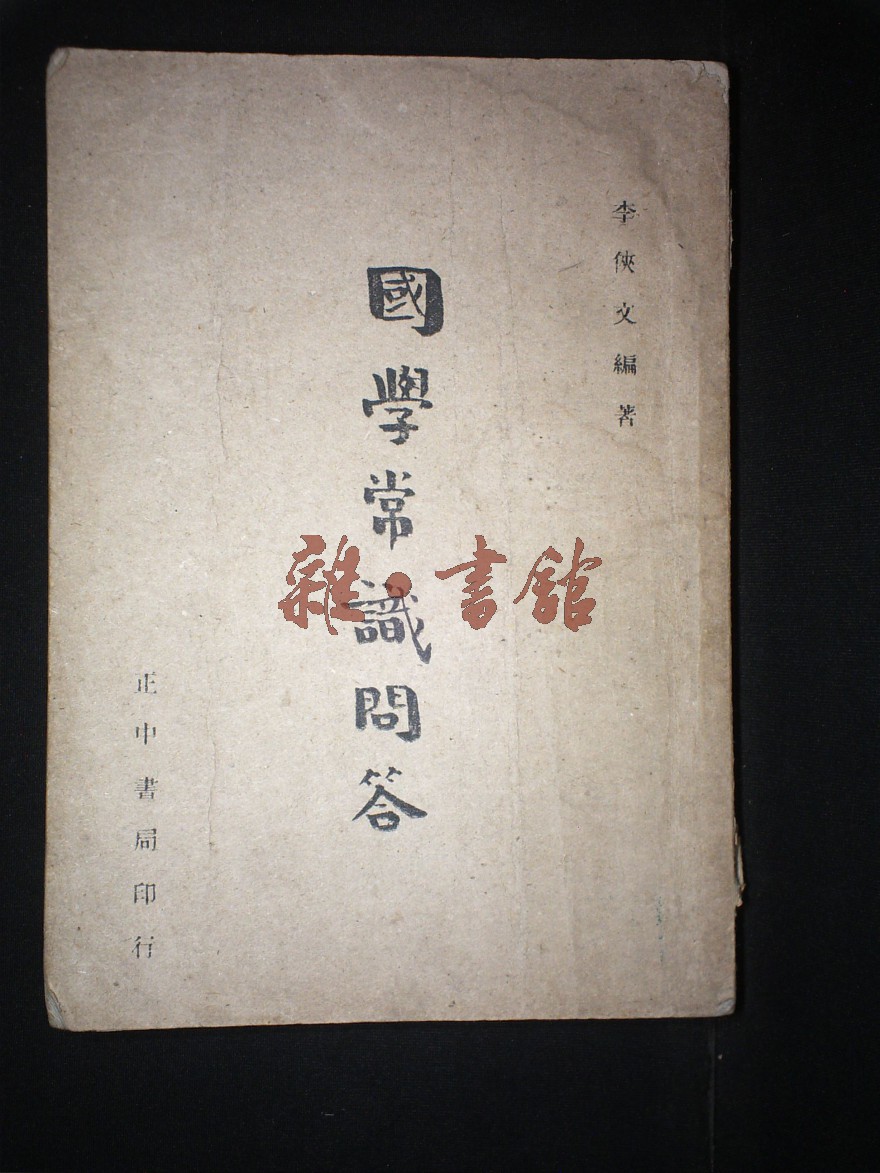 李俠文編著
國學常識問答
正中書局印行
雜·書館